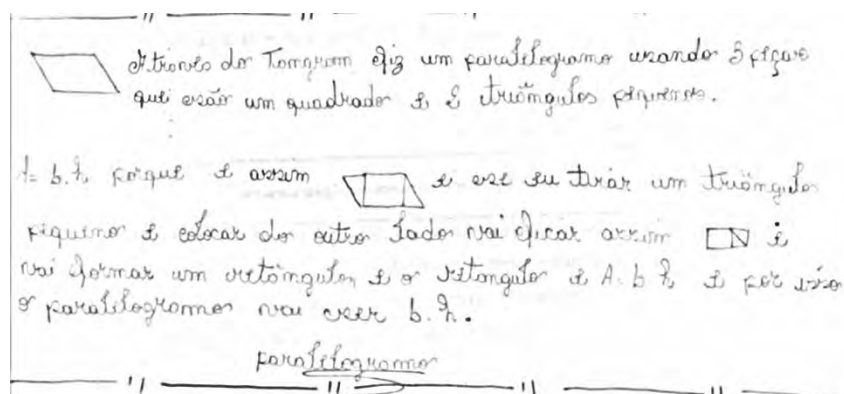 Através do Tangram fiz um paralelogramo usando 3 peças
que são um quadrado e 2 triângulos pequenos.
A= b.h porque é assim e ese eu tirar um triângulo
piquino e colocar do outro lado vai ficar assim e
vai formar um retângulo, e o retangulo é A. b h e por isso
o paralelogramo vai ser b.h.
paralelogramo